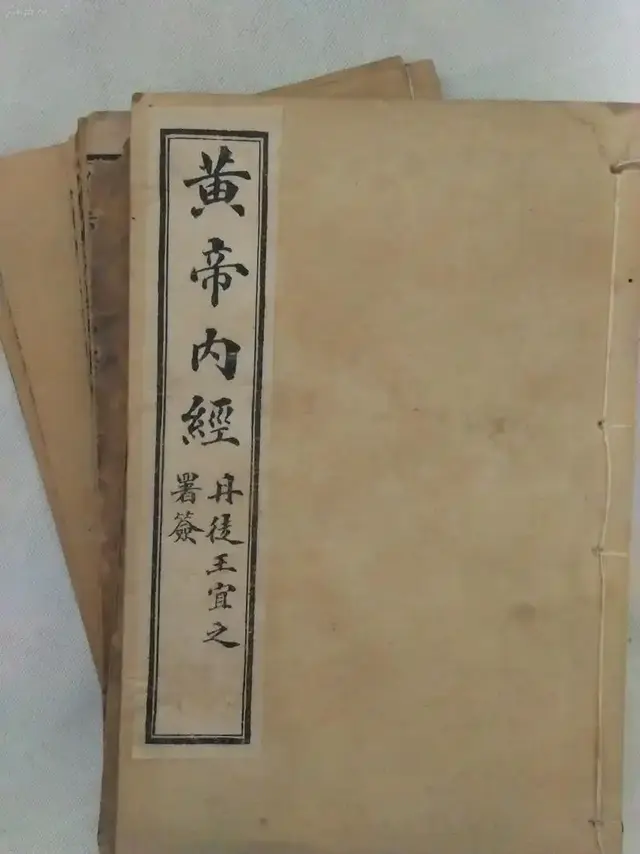 黄帝内經
丹徒王宜之
署簽